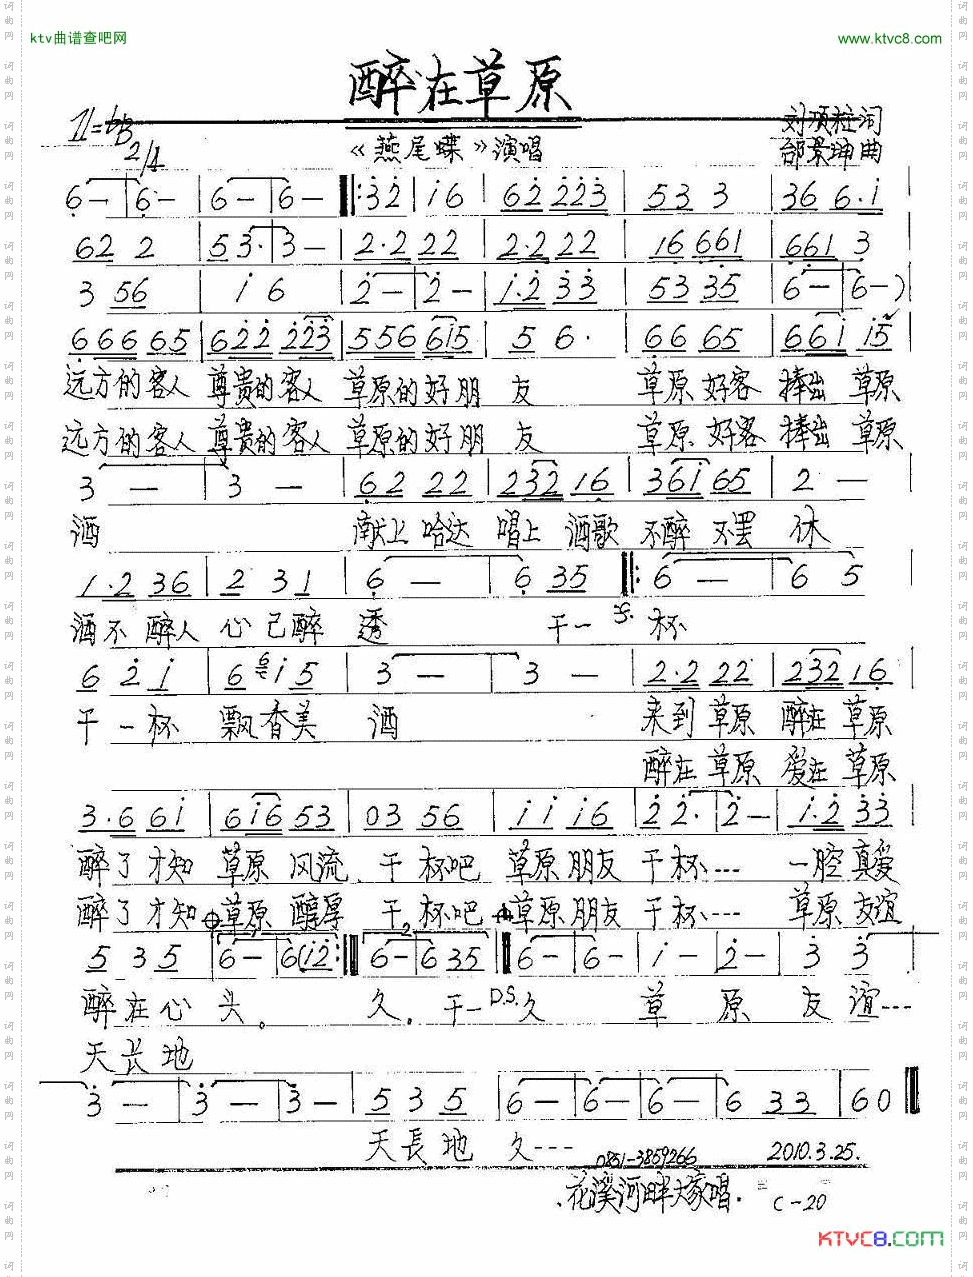 ktv曲谱查吧网 www.ktvc8.com
醉在草原
1=bB 2/4
《燕尾蝶》演唱
刘顶柱词
邰景坤曲
6 — | 6 — | 6 — | 6 — ‖: 3 2 | i 6 | 62 223 | 53 3 | 36 6·i |
62 2 | 53· | 3 — | 2·2 22 | 2·2 22 | 16 661 | 661 3 |
3 56 | i 6 | 2 — | 2 — | i·2 33 | 53 35 | 6 — | 6 — )
6 66 65 | 622 223 | 556 615 | 5 6· | 66 65 | 661 i5 |
远方的客人 尊贵的客人 草原的好朋 友 草原好客 捧出 草原
远方的客人 尊贵的客人 草原的好朋 友 草原好客 捧出 草原
3 — | 3 — | 62 22 | 232 16 | 361 65 | 2 — |
酒 献上 哈达 唱上 酒歌 不醉 不罢 休
1·2 36 | 2 3 1 | 6 — | 6 35 ‖: 6 — | 6 5 |
酒不 醉人 心已醉 透 干一 杯
6 2 i | 6 i 5 | 3 — | 3 — | 2·2 22 | 232 16 |
干一杯 飘香美 酒 来到 草原 醉在 草原
醉在 草原 爱在 草原
3·6 6i | 6i6 53 | 03 56 | i i i6 | 2 2· | 2 — | i·2 33 |
醉了才知 草原 风流 干 杯吧 草原朋友 干杯--- 一腔真爱
醉了才知 草原 醇厚 干 杯吧 草原朋友 干杯--- 草原友谊
5 3 5 | 6 — | 6 (i2 :‖ 6 — | 6 35 ‖ 6 — | 6 — | i — | 2 — | 3 3 |
醉在心 头。 久。 干一 D.S. 久 草 原 友 谊---
天长地
3 — | 3 — | 3 — | 5 3 5 | 6 — | 6 — | 6 — | 6 33 | 60 ‖
天長地 久---
0851-3859266 2010.3.25.
花溪河畔大家唱. C-20
KTVC8.COM